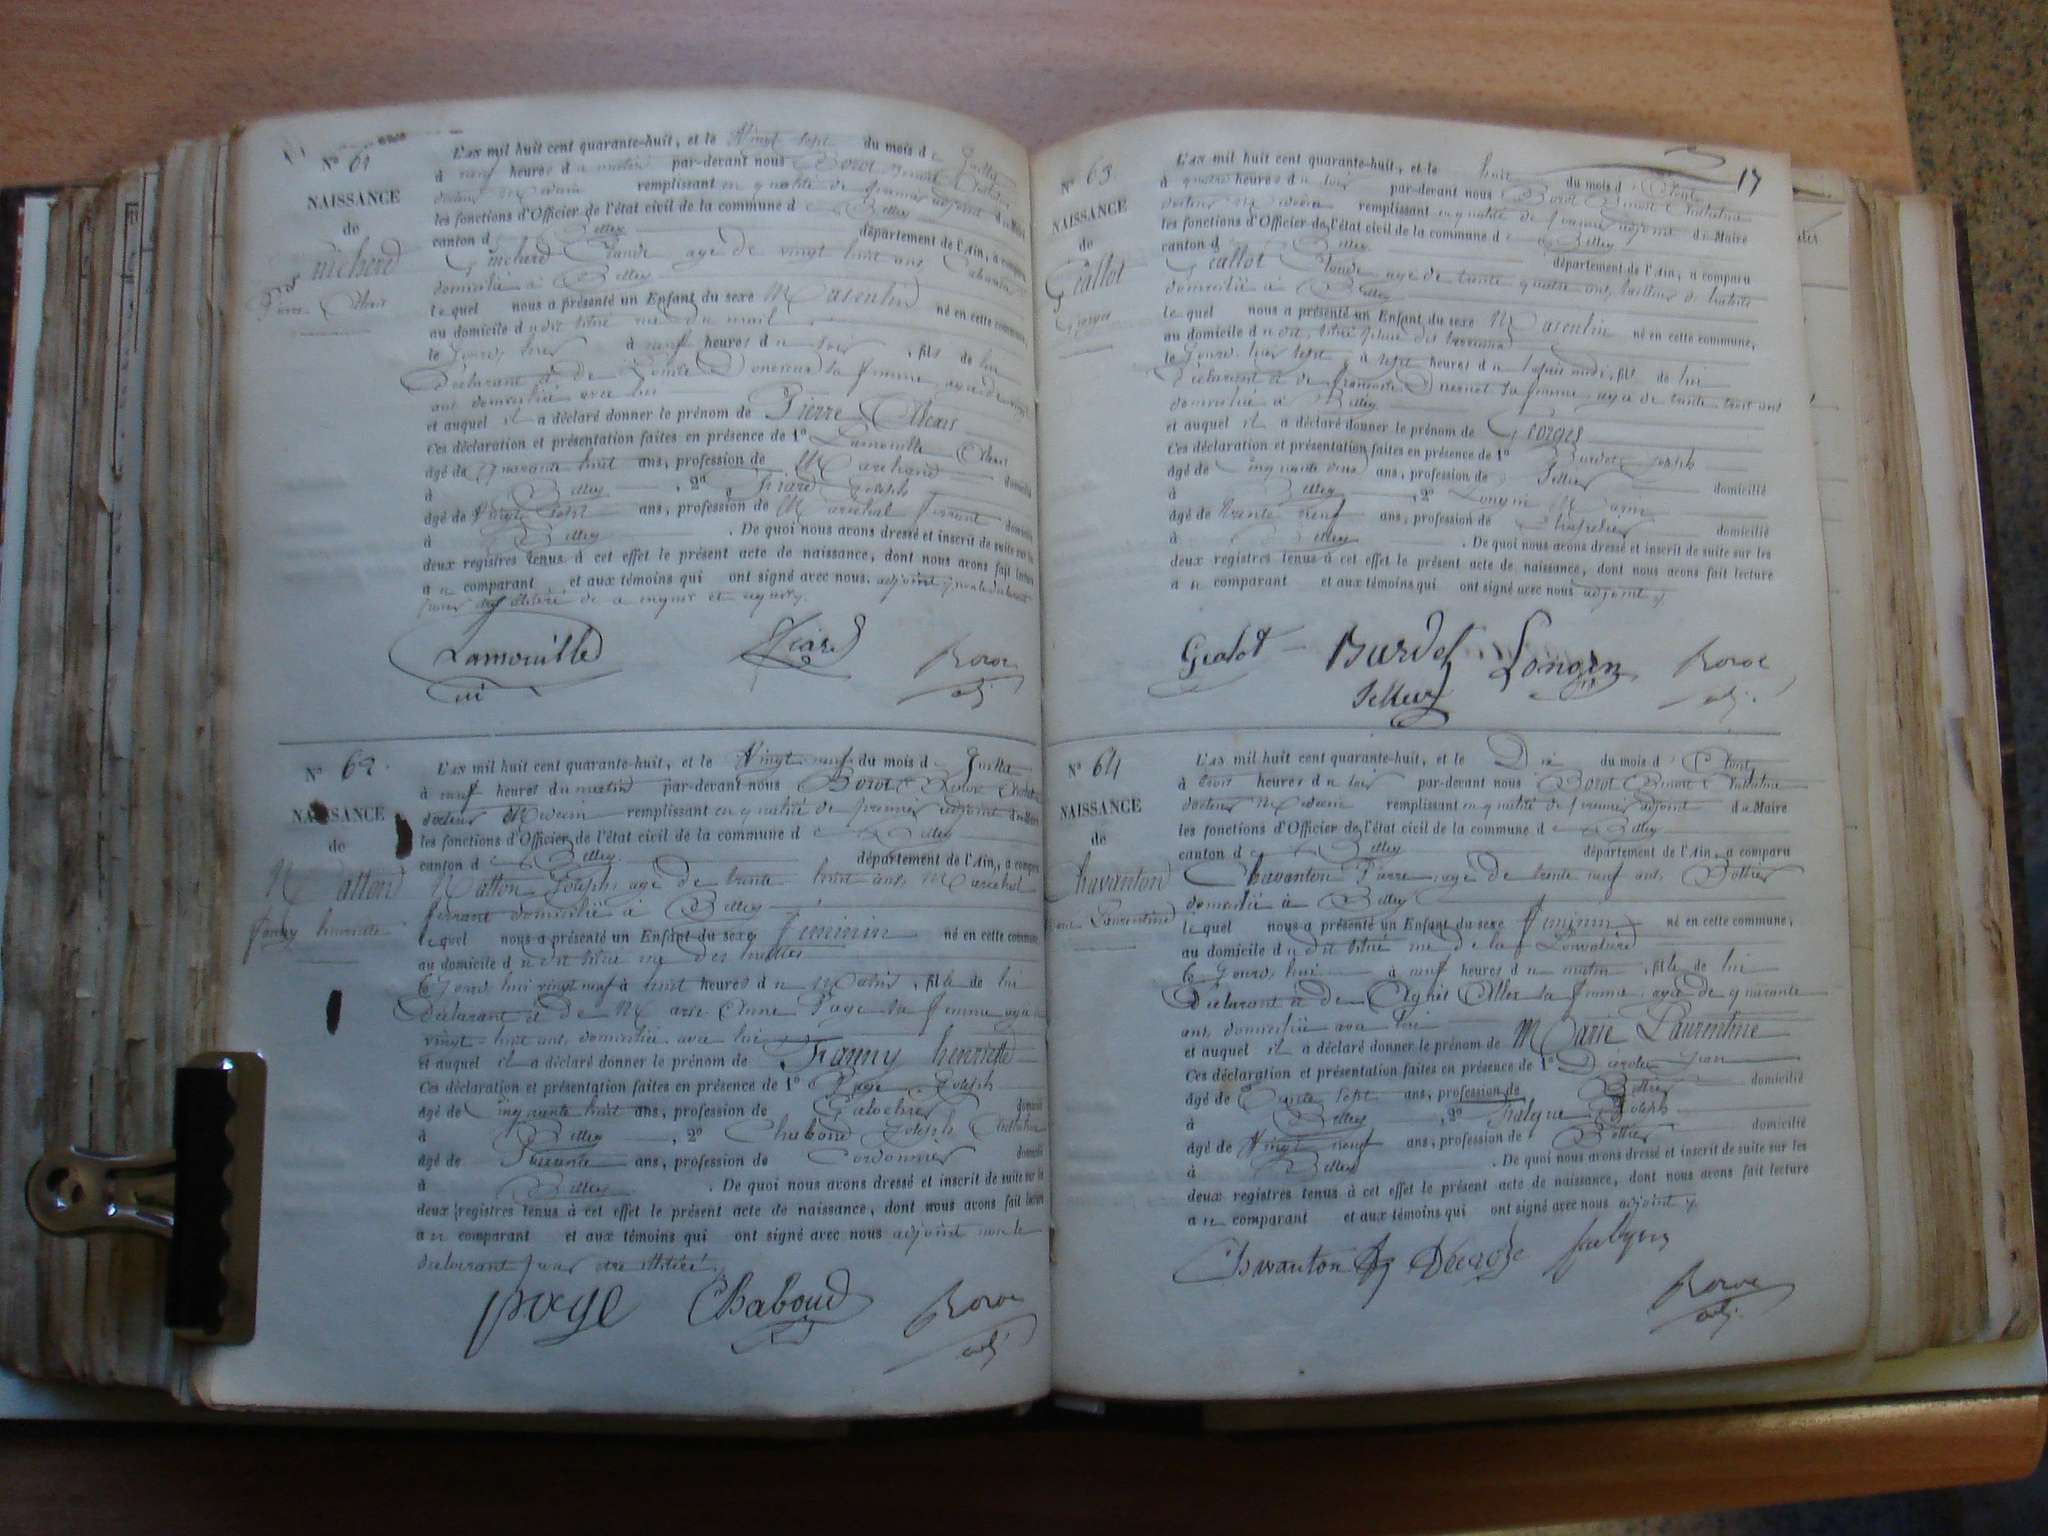 N° 61
NAISSANCE
de
Guicherd
Pierre Alexis
L'AN mil huit cent quarante-huit, et le Vingt sept du mois de Juillet
à neuf heures du matin par-devant nous Borot Benoit Anthelme
docteur Médecin remplissant en qualité de premier adjoint du Maire
les fonctions d'Officier de l'état civil de la commune de Belley
canton de Belley département de l'Ain, a comparu
Guicherd Claude agé de vingt huit ans
domicilié à Belley
lequel nous a présenté un Enfant du sexe Masculin né en cette commune,
au domicile du dit situé rue du mail
le jour d'hier à neuf heures du soir, fils de lui
Déclarant et de sa femme, agée de vingt
ans domiciliée avec lui
et auquel il a déclaré donner le prénom de Pierre Alexis
Ces déclaration et présentation faites en présence de 1° Lamouille
âgé de Quarante huit ans, profession de Marchand domicilié
à Belley, 2° Joseph
âgé de Vingt sept ans, profession de Maréchal ferrant domicilié
à Belley. De quoi nous avons dressé et inscrit de suite sur les
deux registres tenus à cet effet le présent acte de naissance, dont nous avons fait lecture
au comparant et aux témoins qui ont signé avec nous adjoint, non le déclarant
pour être illitéré de ce enquis et requis.
Lamouille
Borot
adj.
N° 62
NAISSANCE
de
Matton
Fanny henriette
L'AN mil huit cent quarante-huit, et le Vingt neuf du mois de Juillet
à neuf heures du matin par-devant nous Borot Benoit Anthelme
docteur Médecin remplissant en qualité de premier adjoint du Maire
les fonctions d'Officier de l'état civil de la commune de Belley
canton de Belley département de l'Ain, a comparu
Matton Joseph agé de trente huit ans, Maréchal
ferrant domicilié à Belley
lequel nous a présenté un Enfant du sexe féminin né en cette commune,
au domicile du dit situé rue des
le Jourd'hui vingt neuf à huit heures du Matin, fille de lui
Déclarant et de Marie Anne Page sa femme agée
vingt-huit ans domiciliée avec lui
et auquel il a déclaré donner le prénom de Fanny henriette
Ces déclaration et présentation faites en présence de 1° Page Joseph
âgé de Cinquante huit ans, profession de Galochier domicilié
à Belley, 2° Chaboud Joseph Anthelme
âgé de ans, profession de Cordonnier domicilié
à Belley. De quoi nous avons dressé et inscrit de suite sur les
deux registres tenus à cet effet le présent acte de naissance, dont nous avons fait lecture
au comparant et aux témoins qui ont signé avec nous adjoint non le
déclarant pour être illitéré.
page Chaboud Borot
adj.
17
N° 63
NAISSANCE
de
Giallot
Georges
L'AN mil huit cent quarante-huit, et le huit du mois d'Août
à quatre heures du soir par-devant nous Borot Benoit Anthelme
docteur Médecin remplissant en qualité de premier adjoint du Maire
les fonctions d'Officier de l'état civil de la commune de Belley
canton de Belley département de l'Ain, a comparu
Giallot Claude agé de trente quatre ans, tailleur d'habits
domicilié à Belley
lequel nous a présenté un Enfant du sexe Masculin né en cette commune,
au domicile du dit, situé place des terreaux
le Jour d'hier sept à sept heures du après midi, fils de lui
Déclarant et de françoise sa femme agée de trente trois ans
domiciliée à Belley
et auquel il a déclaré donner le prénom de Georges
Ces déclaration et présentation faites en présence de 1° Burdet Joseph
âgé de Cinquante deux ans, profession de Sellier domicilié
à Belley, 2° Longin Marin
âgé de trente neuf ans, profession de Chapelier domicilié
à Belley. De quoi nous avons dressé et inscrit de suite sur les
deux registres tenus à cet effet le présent acte de naissance, dont nous avons fait lecture
au comparant et aux témoins qui ont signé avec nous adjoint
Gialot Burdet Longin Borot
Sellier adj.
N° 64
NAISSANCE
de
Chavanton
Marie Laurentine
L'AN mil huit cent quarante-huit, et le Dix du mois d'Août
à trois heures du soir par-devant nous Borot Benoit Anthelme
docteur Médecin remplissant en qualité de premier adjoint du Maire
les fonctions d'Officier de l'état civil de la commune de Belley
canton de Belley département de l'Ain, a comparu
Chavanton Pierre, agé de trente neuf ans, Bottier
domicilié à Belley
lequel nous a présenté un Enfant du sexe féminin né en cette commune,
au domicile du dit situé rue de la
le Jourd'hui à neuf heures du matin, fille de lui
Déclarant et de Agnès Allex sa femme, agée de quarante
ans, domiciliée avec lui
et auquel il a déclaré donner le prénom de Marie Laurentine
Ces déclaration et présentation faites en présence de 1° Décroze Jean
âgé de Trente sept ans, profession de Bottier domicilié
à Belley, 2° Falque Joseph
âgé de Vingt neuf ans, profession de Bottier domicilié
à Belley. De quoi nous avons dressé et inscrit de suite sur les
deux registres tenus à cet effet le présent acte de naissance, dont nous avons fait lecture
au comparant et aux témoins qui ont signé avec nous adjoint
Chavanton Décroze
Borot
adj.